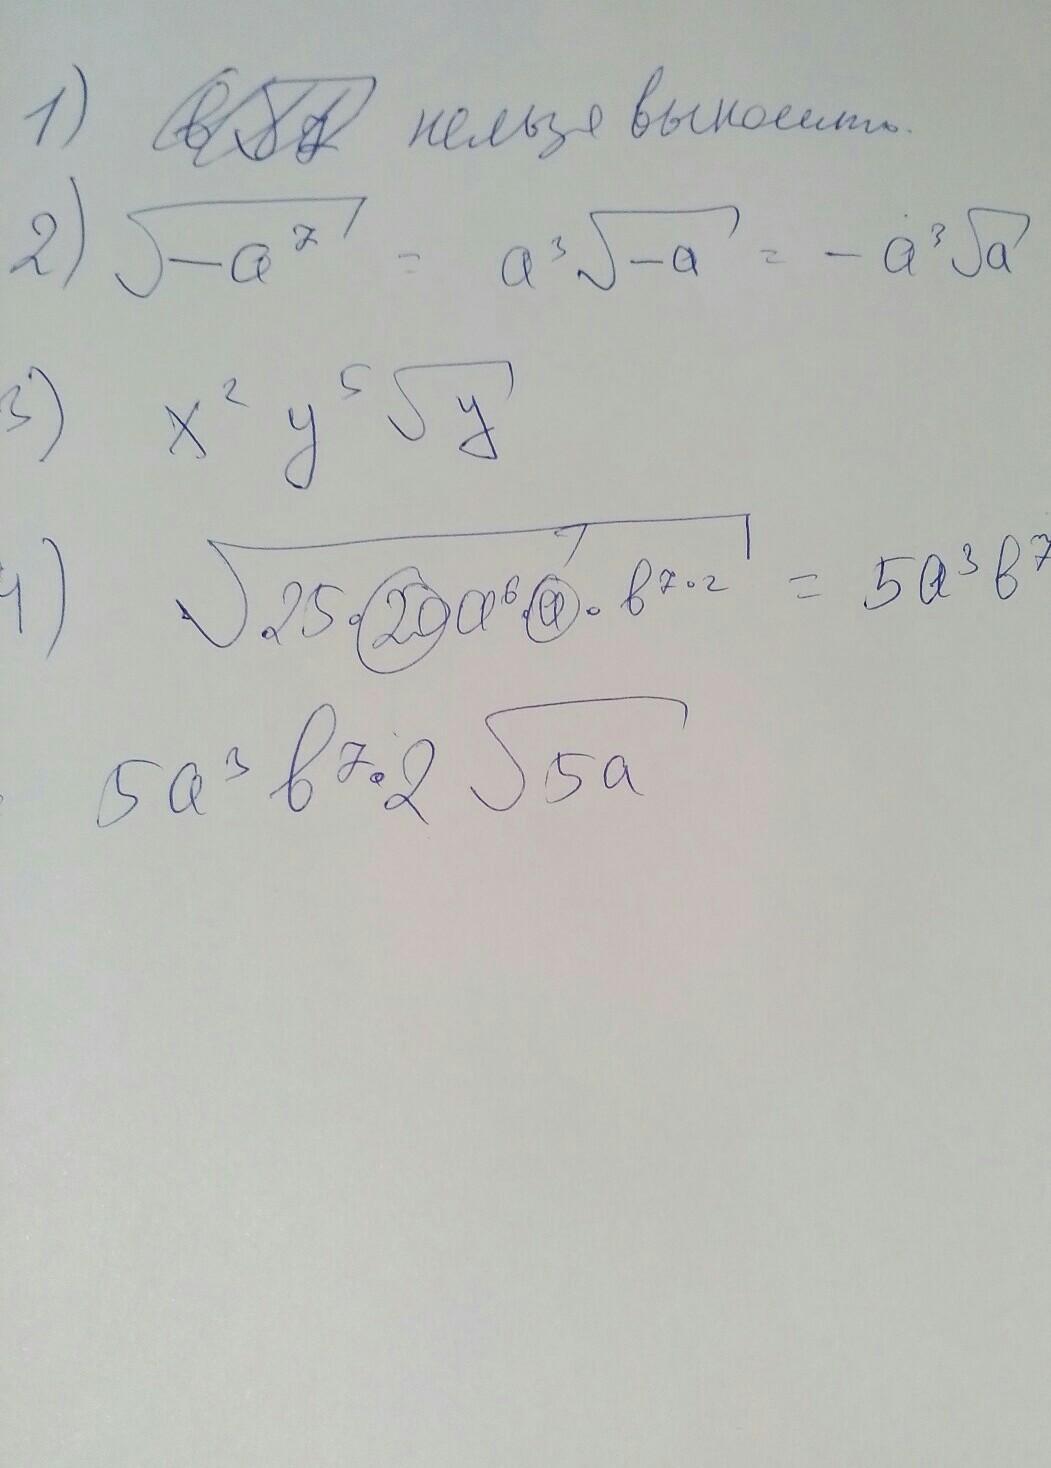 1) нельзя выносить.
2) √-a⁷ = a³√-a = - a³√a
3) x² y⁵ √y
4) √25·20a⁶·a·b⁷·² = 5a³b⁷
5a³ b⁷·2 √5a